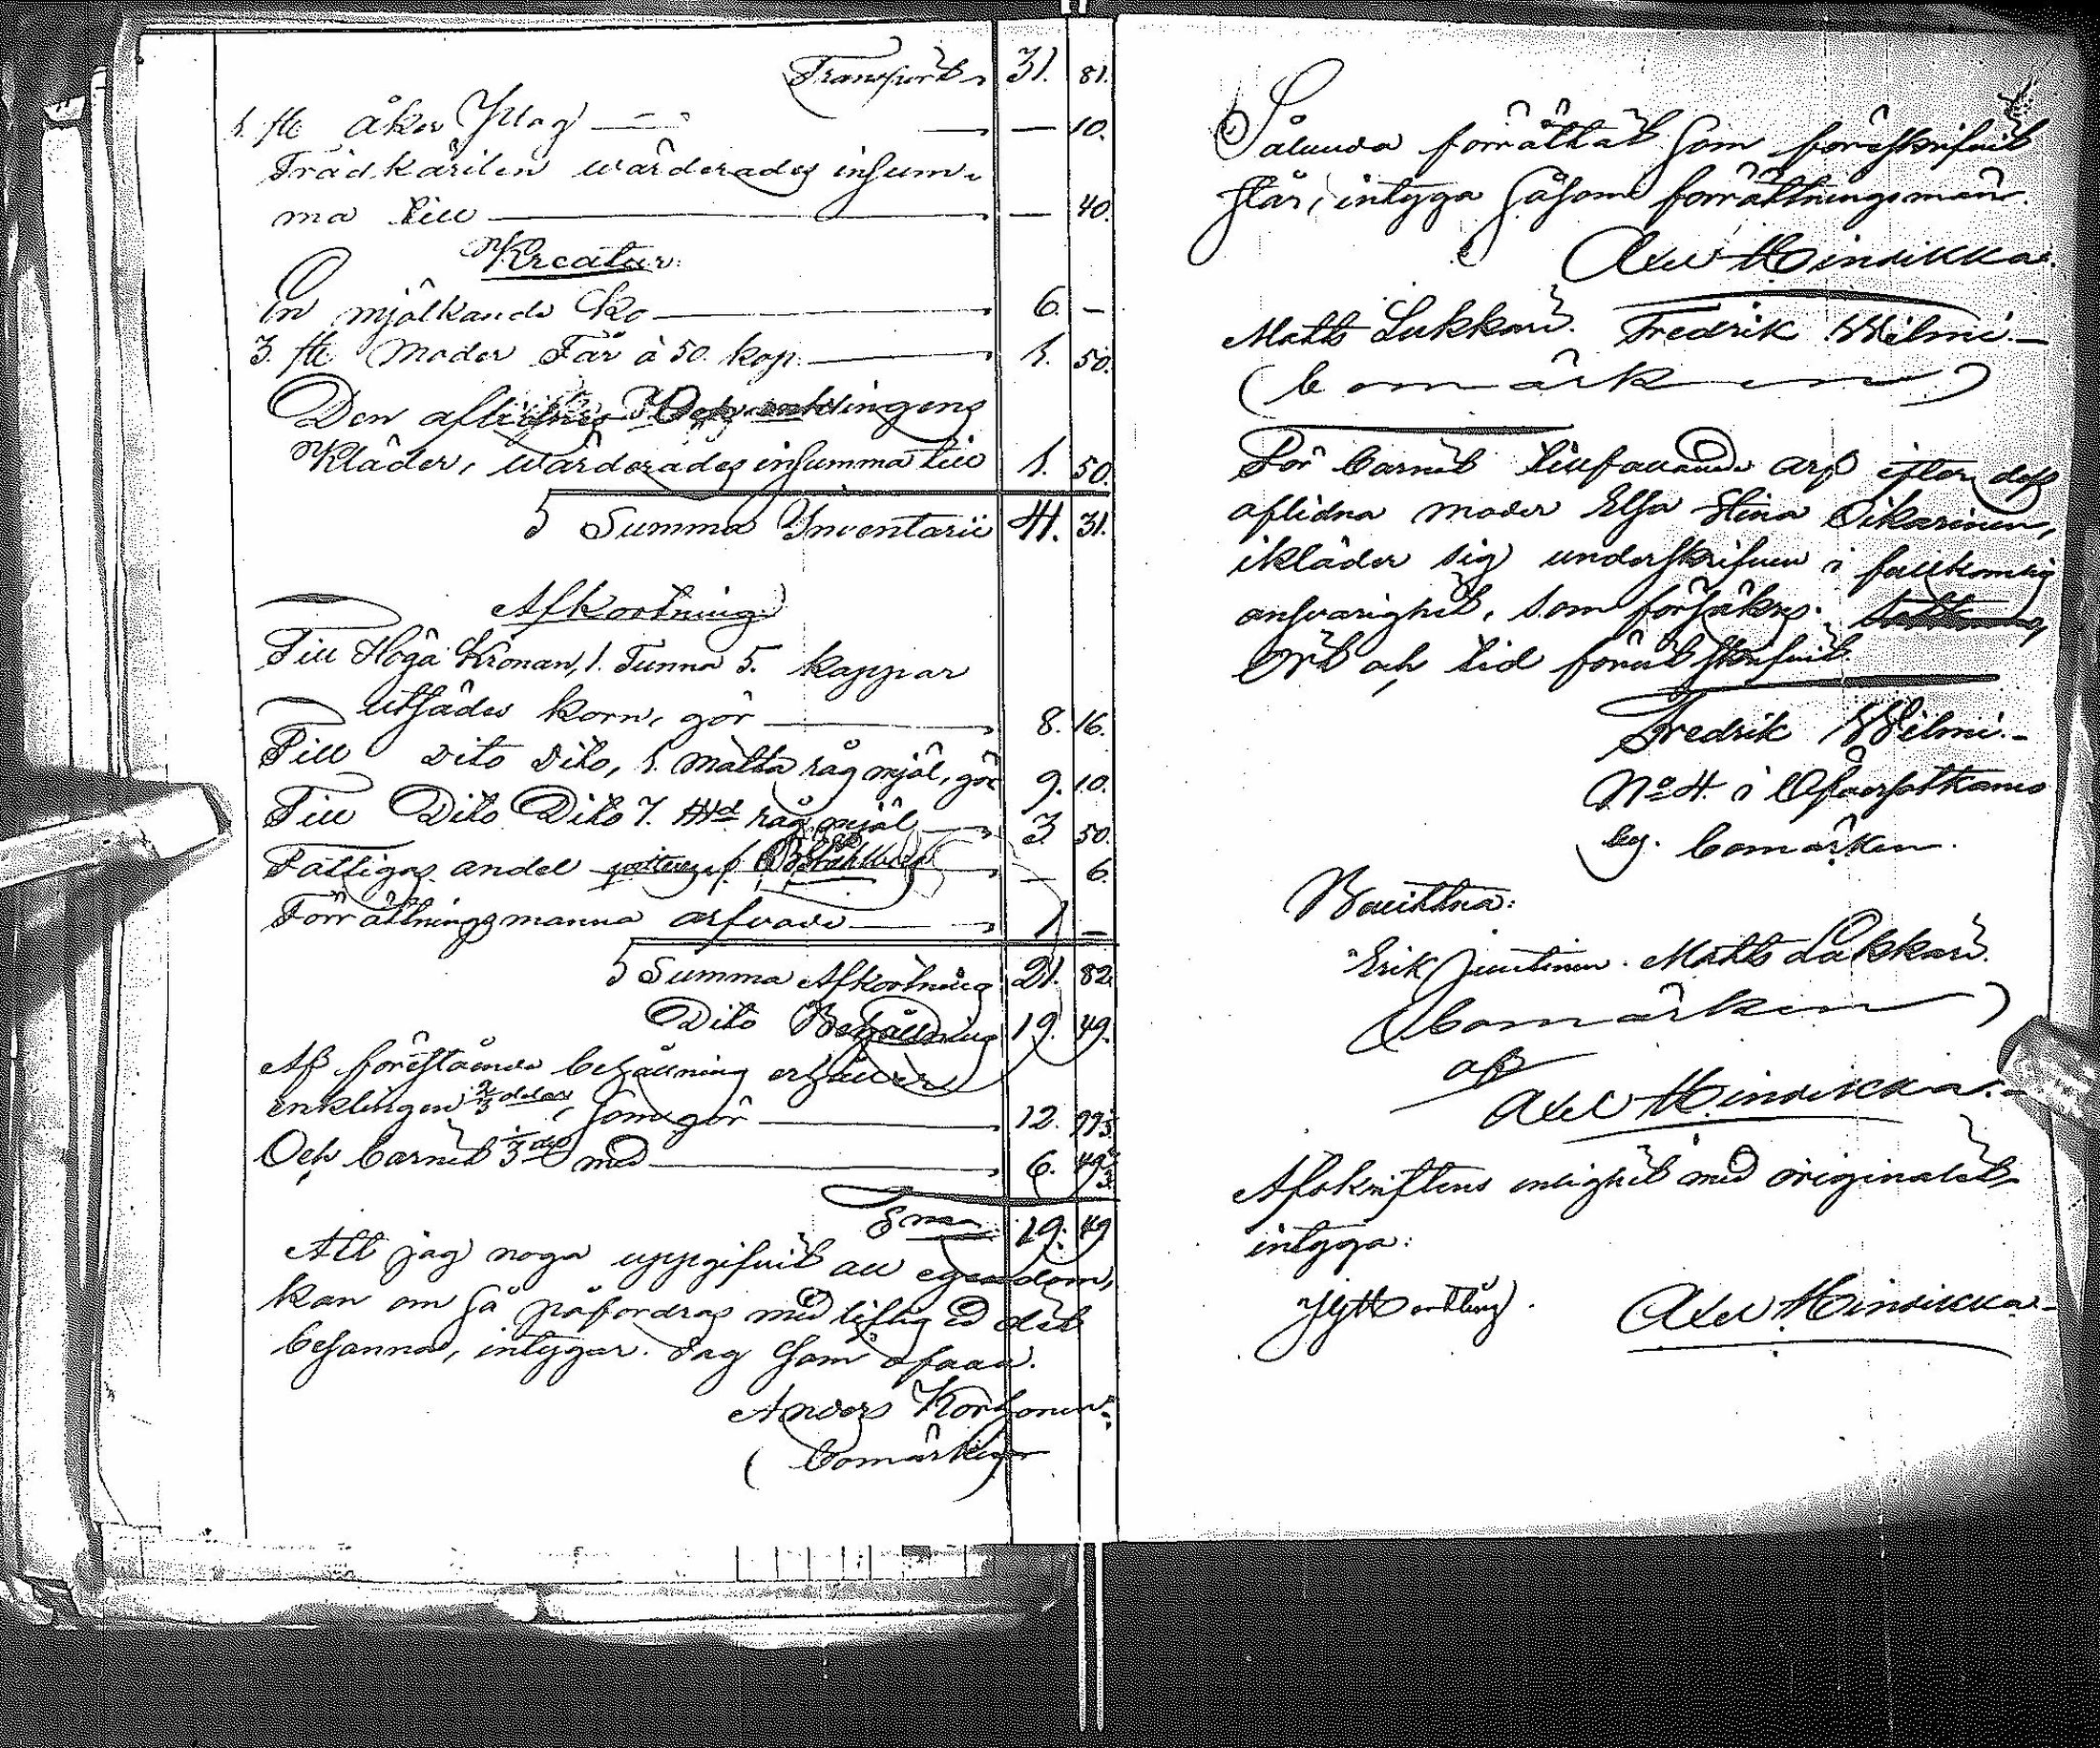 Transport 31. 81.
1. st. åker Plog — 10.
Trädkärilen wärderades insum-
ma till — 40.
Kreatur.
En mjölkande Ko 6. —
3. st. Moder Får à 50. kop. 1. 50.
Den aflidnes
Kläder, wärderades insumma till 1. 50.
Summa Inventarii 41. 31.
Afkortning
Till Höga Kronan, 1. Tunna 5. kappar
utsädes korn, gör 8. 16.
Till Dito Dito, 1. matta råg mjöl, gör 9. 10.
Till Dito Dito 7. råg mjöl 3. 50.
Fattigas andel — 6.
Förrättningsmanna arfvode 1. —
Summa Afkortning 21. 82.
Dito Behållning 19. 49.
Af förestående behållning erhåller
enklingen 2/3 delar, som gör 12.
Och barnet 1/3 del med 6.
Sma 19. 49
Att jag noga uppgifvit all egendom,
kan om så påfordras med liflig Ed det
besanna, intygar. Dag som ofvan.
Anders Korhonen.
(bomärke)
Sålunda förrättat som föreskrifvit
står, intyga såsom förrättningsmän.
Axel Hindikka.
Matts Lukkari. Fredrik Wilmi.
(bomärken)
För barnet tillfallande arf efter dess
aflidna moder Elsa Stina Pikarinen,
ikläder sig underskrifven i fullkomlig
ansvarighet, som försäkras.
Ort och tid förut skrifvit.
Fredrik Wilmi.
No 4. i
by. bomärken.
Bevittna:
Erik Juntinen. Matts Lukkari.
(bomärken)
af
Axel Hindikka.
Afskriftens enlighet med originalet
intyga:
Axel Hindikka.